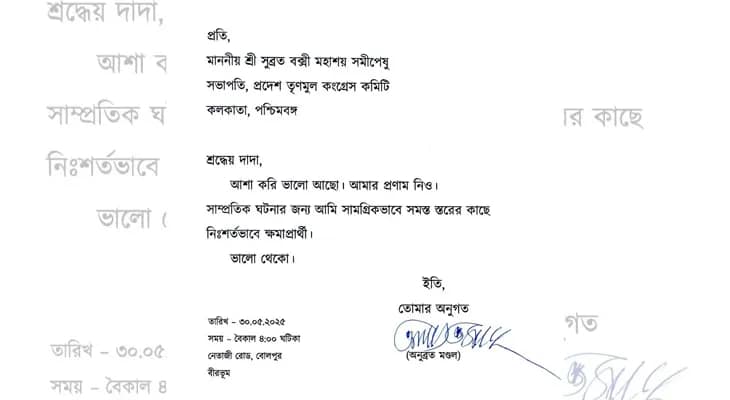 প্রতি,
মাননীয় শ্রী সুব্রত বক্সী মহাশয় সমীপেষু
সভাপতি, প্রদেশ তৃণমুল কংগ্রেস কমিটি
কলকাতা, পশ্চিমবঙ্গ
শ্রদ্ধেয় দাদা,
আশা করি ভালো আছো। আমার প্রণাম নিও।
সাম্প্রতিক ঘটনার জন্য আমি সামগ্রিকভাবে সমস্ত স্তরের কাছে
নিঃশর্তভাবে ক্ষমাপ্রার্থী।
ভালো থেকো।
ইতি,
তোমার অনুগত
(অনুব্রত মণ্ডল)
তারিখ – ৩০.০৫.২০২৫
সময় – বৈকাল ৪:০০ ঘটিকা
নেতাজী রোড, বোলপুর
বীরভূম
শ্রদ্ধেয় দাদা,
আশা ক
সাম্প্রতিক ঘ
র কাছে
নিঃশর্তভাবে
ভালো
গত
তারিখ – ৩০.০৫
সময় – বৈকাল ৪